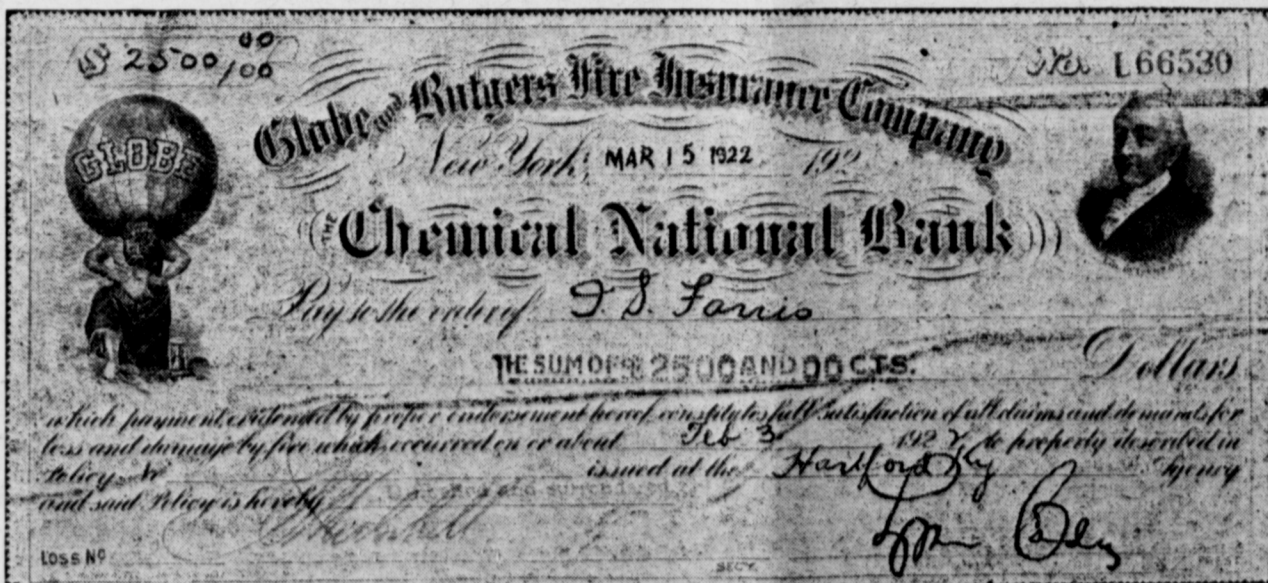 $ 2500 00/100
No. L 66530
GLOBE
Globe and Rutgers Fire Insurance Company
New York, MAR 15 1922 192
THE Chemical National Bank
Pay to the order of
THE SUM OF $2500 AND 00 CTS. Dollars
which payment, evidenced by proper endorsement hereof, constitutes full satisfaction of all claims and demands for
loss and damage by fire which occurred on or about Feb 3 1922 to property described in
Policy issued at the Hartford Ky Agency
and said Policy is hereby
LOSS NO
SECY.
PREST.